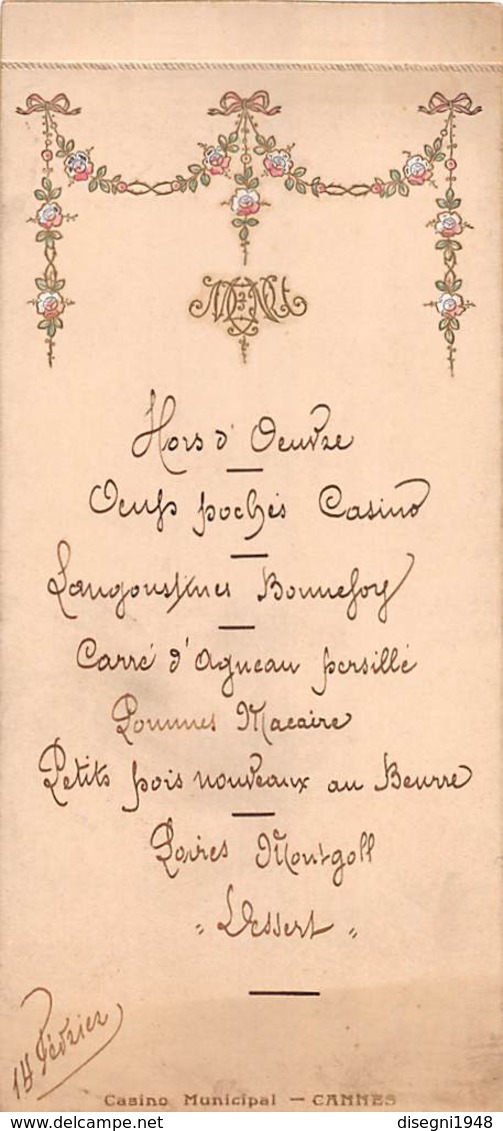 MENU
Hors d'Oeuvre
Oeufs pochés Casino
Langoustines Bonnefoy
Carré d'Agneau persillé
Pommes Macaire
Petits pois nouveaux au Beurre
Poires Montgolf
"Dessert"
14 Février
Casino Municipal — CANNES
delcampe.net
disegni1948